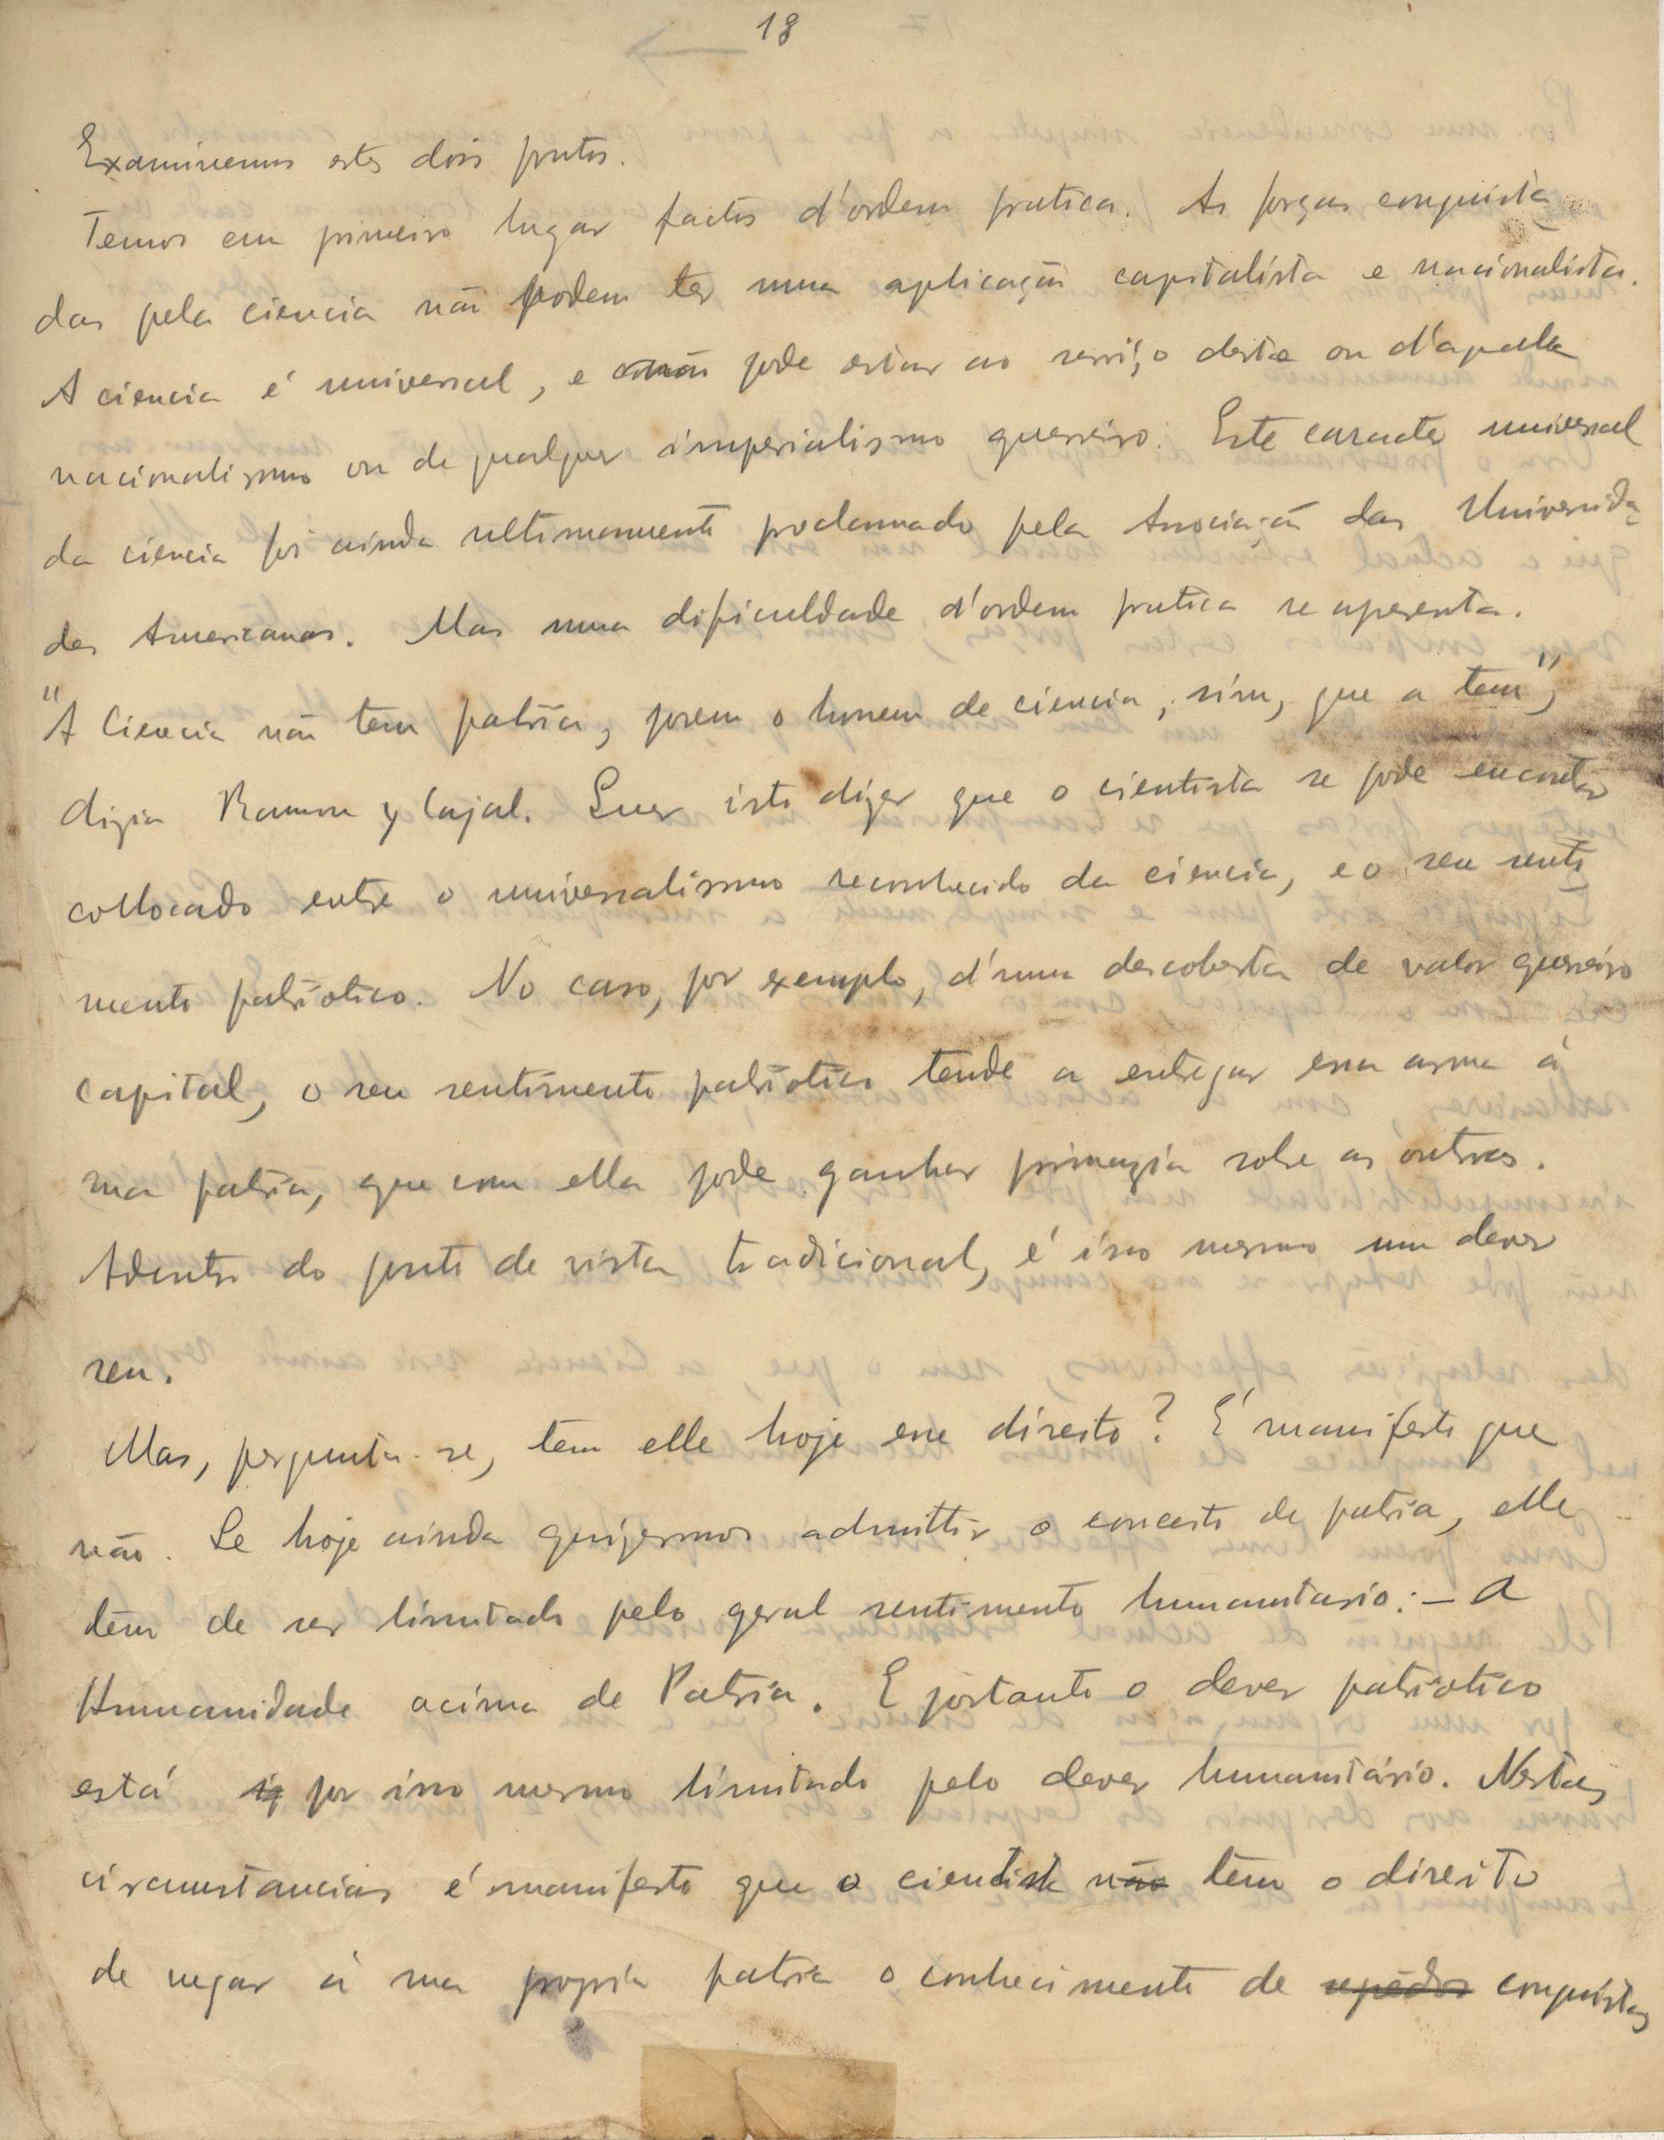 18
Examinemos estes dois pontos.
Temos em primeiro lugar factos d'ordem pratica. As forças conquista-
das pela ciencia não podem ter uma aplicação capitalista e nacionalista.
A ciencia é universal, e não pode estar ao serviço deste ou d'aquelle
nacionalismo ou de qualquer imperialismo guerreiro. Este caracter universal
da ciencia foi ainda ultimamente proclamado pela Associação das Universida-
des Americanas. Mas uma dificuldade d'ordem pratica se apresenta.
"A Ciencia não tem patria, porem o homem de ciencia, sim, que a tem",
dizia Ramon y Cajal. Quer isto dizer que o cientista se pode encontrar
collocado entre o universalismo reconhecido da ciencia, e o seu senti-
mento patriotico. No caso, por exemplo, d'uma descoberta de valor guerreiro
capital, o seu sentimento patriotico tende a entregar essa arma á
sua patria, que com ella pode ganhar primazia sobre as outras.
Adentro do ponto de vista tradicional, é isso mesmo um dever
seu.
Mas, pergunta-se, tem elle hoje esse direito? É manifesto que
não. Se hoje ainda quizermos admittir o conceito de patria, elle
tem de ser limitado pelo geral sentimento humanitario: – A
Humanidade acima de Patria. E portanto o dever patriotico
está por isso mesmo limitado pelo dever humanitário. Nestas
circunstancias é manifesto que o cientista não tem o direito
de negar á sua propria patria o conhecimento de conquistas